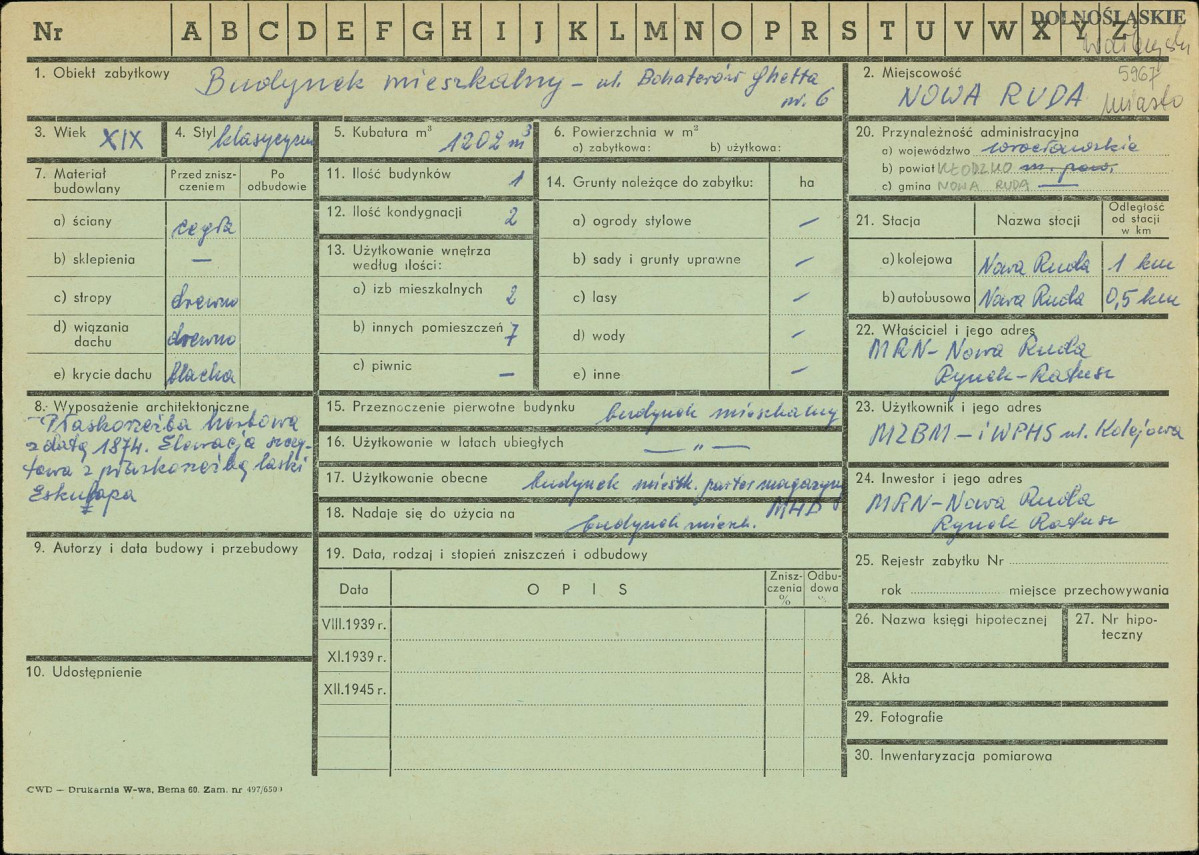 Nr A B C D E F G H I J K L M N O P R S T U V W X Y Z
DOLNOŚLĄSKIE
5967
miasto
1. Obiekt zabytkowy Budynek mieszkalny – ul. Bohaterów Ghetta
nr. 6
2. Miejscowość
NOWA RUDA
3. Wiek XIX
4. Styl klasycyzm
5. Kubatura m³ 1202 m³
6. Powierzchnia w m²
a) zabytkowa: b) użytkowa:
7. Materiał budowlany
Przed zniszczeniem
Po odbudowie
a) ściany cegła
b) sklepienia —
c) stropy drewno
d) wiązania dachu drewno
e) krycie dachu blacha
8. Wyposażenie architektoniczne
Płaskorzeźba herbowa
z datą 1874. Elewacja szczy-
towa z płaskorzeźbą laski
Eskulapa
9. Autorzy i data budowy i przebudowy
10. Udostępnienie
11. Ilość budynków 1
12. Ilość kondygnacji 2
13. Użytkowanie wnętrza
według ilości:
a) izb mieszkalnych 2
b) innych pomieszczeń 7
c) piwnic —
14. Grunty należące do zabytku: ha
a) ogrody stylowe —
b) sady i grunty uprawne —
c) lasy —
d) wody —
e) inne —
15. Przeznoczenie pierwotne budynku budynek mieszkalny
16. Użytkowanie w latach ubiegłych — „ —
17. Użytkowanie obecne budynek mieszk. parter magazyny
MHD
18. Nadaje się do użycia na budynek mieszk.
19. Data, rodzaj i stopień zniszczeń i odbudowy
Data OPIS Zniszczenia % Odbudowa %
VIII.1939 r.
XI.1939 r.
XII.1945 r.
20. Przynależność administracyjna
a) województwo wrocławskie
b) powiat KŁODZKO m. pow.
c) gmina NOWA RUDA —
21. Stacja Nazwa stacji Odległość od stacji w km
a) kolejowa Nowa Ruda 1 km
b) autobusowa Nowa Ruda 0,5 km
22. Właściciel i jego adres
MRN – Nowa Ruda
Rynek – Ratusz
23. Użytkownik i jego adres
MZBM – i WPHS ul. Kolejowa
24. Inwestor i jego adres
MRN – Nowa Ruda
Rynek Ratusz
25. Rejestr zabytku Nr
rok miejsce przechowywania
26. Nazwa księgi hipotecznej
27. Nr hipo-
teczny
28. Akta
29. Fotografie
30. Inwentaryzacja pomiarowa
CWD — Drukarnia W-wa, Bema 60. Zam. nr 497/650